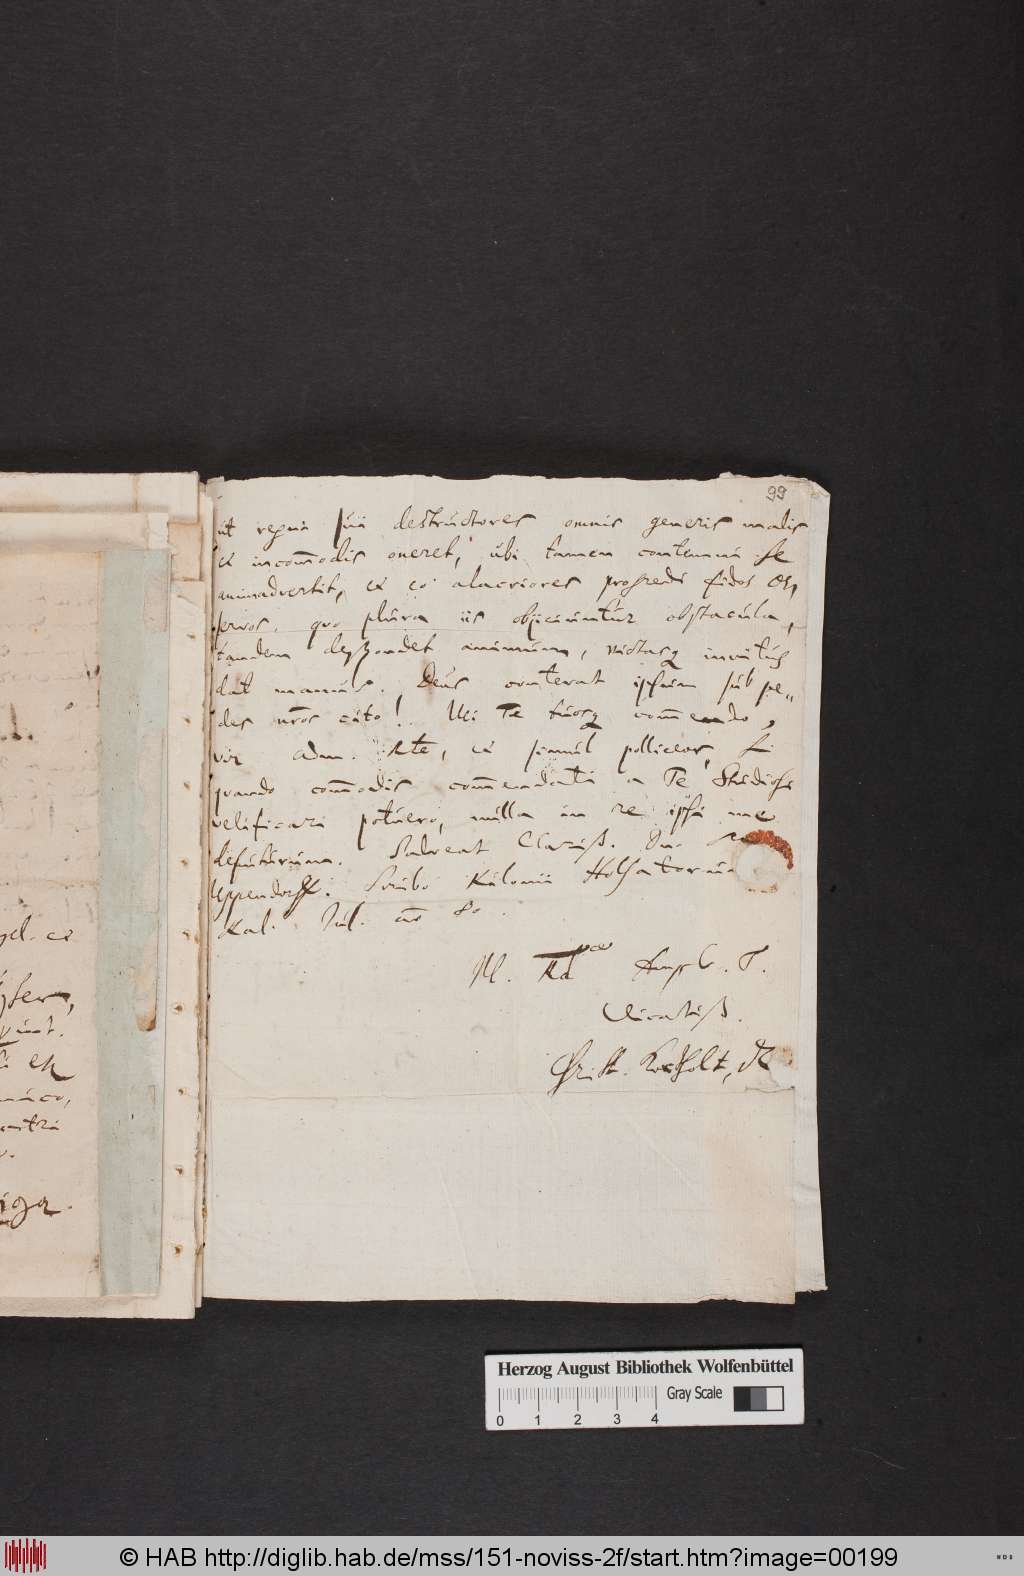 99
ut regni sui destructores omnis generis malis
et incom̄odis oneret, ubi tamen contemni se
animadvertit, et eo alacriores progredi fidos
servos, quo plura iis objiciuntur obstacula,
tandem despondet animum, victasq invitus
dat manus. Deus conterat ipsum sub pe„
des nr̄os cito! Ui Te tuosq com̄endo,
vir Adm. Rde, et simul polliceor, si
quando com̄odis com̄endati a Te Studiosi
velificari potuero, nulla in re ipsi me
defuturum. Salveat Clariss. Dn.
Uppendorff. Scribo Kilonii Holsatorum
Kal. Jul. aō 80.
M. Rdae Ampl. T.
Dicatiss.
Christ. Kortholt, D
gel. et
sunt.
Herzog August Bibliothek Wolfenbüttel
0 1 2 3 4 Gray Scale
© HAB http://diglib.hab.de/mss/151-noviss-2f/start.htm?image=00199